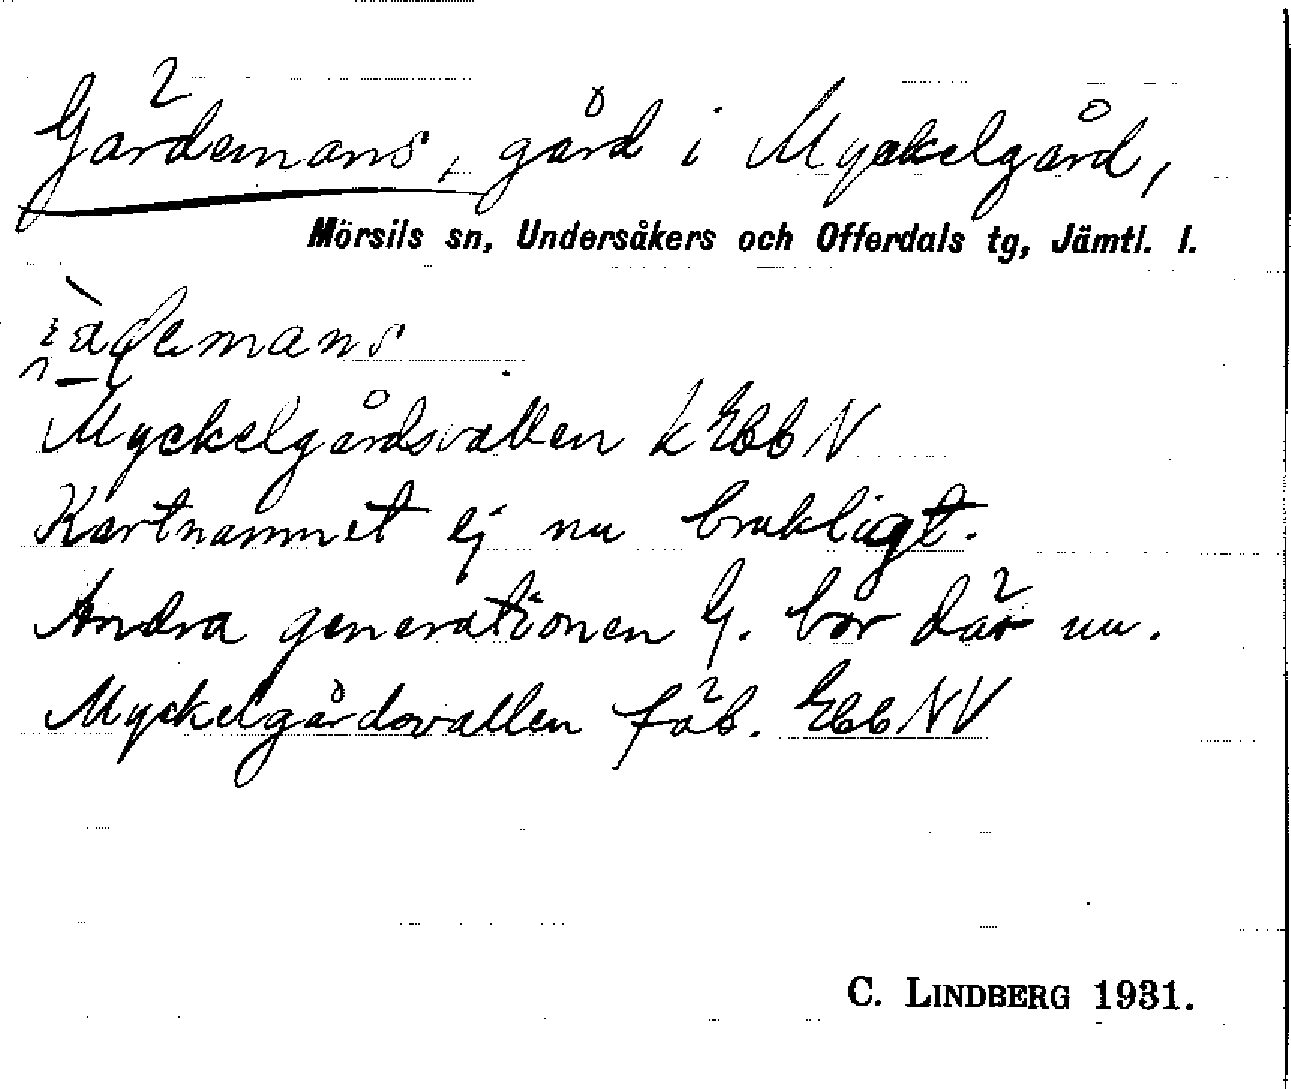 Gärdemans, gård i Myckelgård,
Mörsils sn, Undersåkers och Offerdals tg, Jämtl. l.
Myckelgårdsvallen k Ebb N
Kartnamnet ej nu brukligt.
Andra generationen G. bor där nu.
Myckelgårdsvallen fäb. Ebb NV
C. LINDBERG 1931.